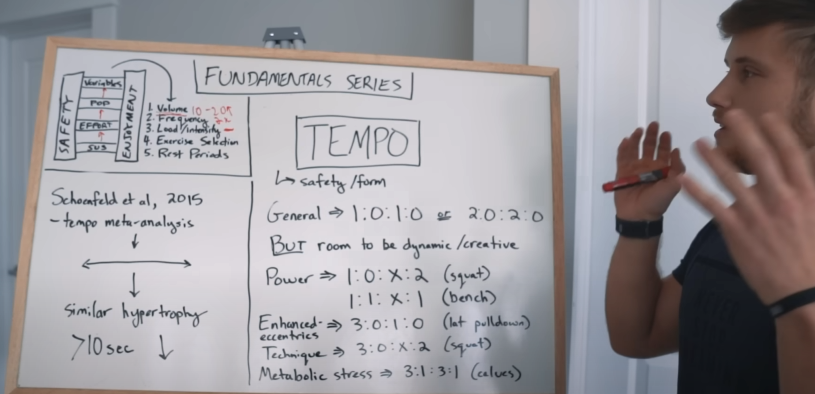 FUNDAMENTALS SERIES
SAFETY
Variables
POP
EFFORT
SUS
ENJOYMENT
1. Volume 10-20s
2. Frequency +2
3. Load/intensity -
4. Exercise Selection
5. Rest Periods
TEMPO
↳ safety/form
General ⇒ 1:0:1:0 or 2:0:2:0
BUT room to be dynamic/creative
Power ⇒ 1:0:X:2 (squat)
1:1:X:1 (bench)
Enhanced- ⇒ 3:0:1:0 (lat pulldown)
eccentrics
Technique ⇒ 3:0:X:2 (squat)
Metabolic stress ⇒ 3:1:3:1 (calves)
Schoenfeld et al, 2015
- tempo meta-analysis
↓
↔
↓
similar hypertrophy
>10 sec ↓